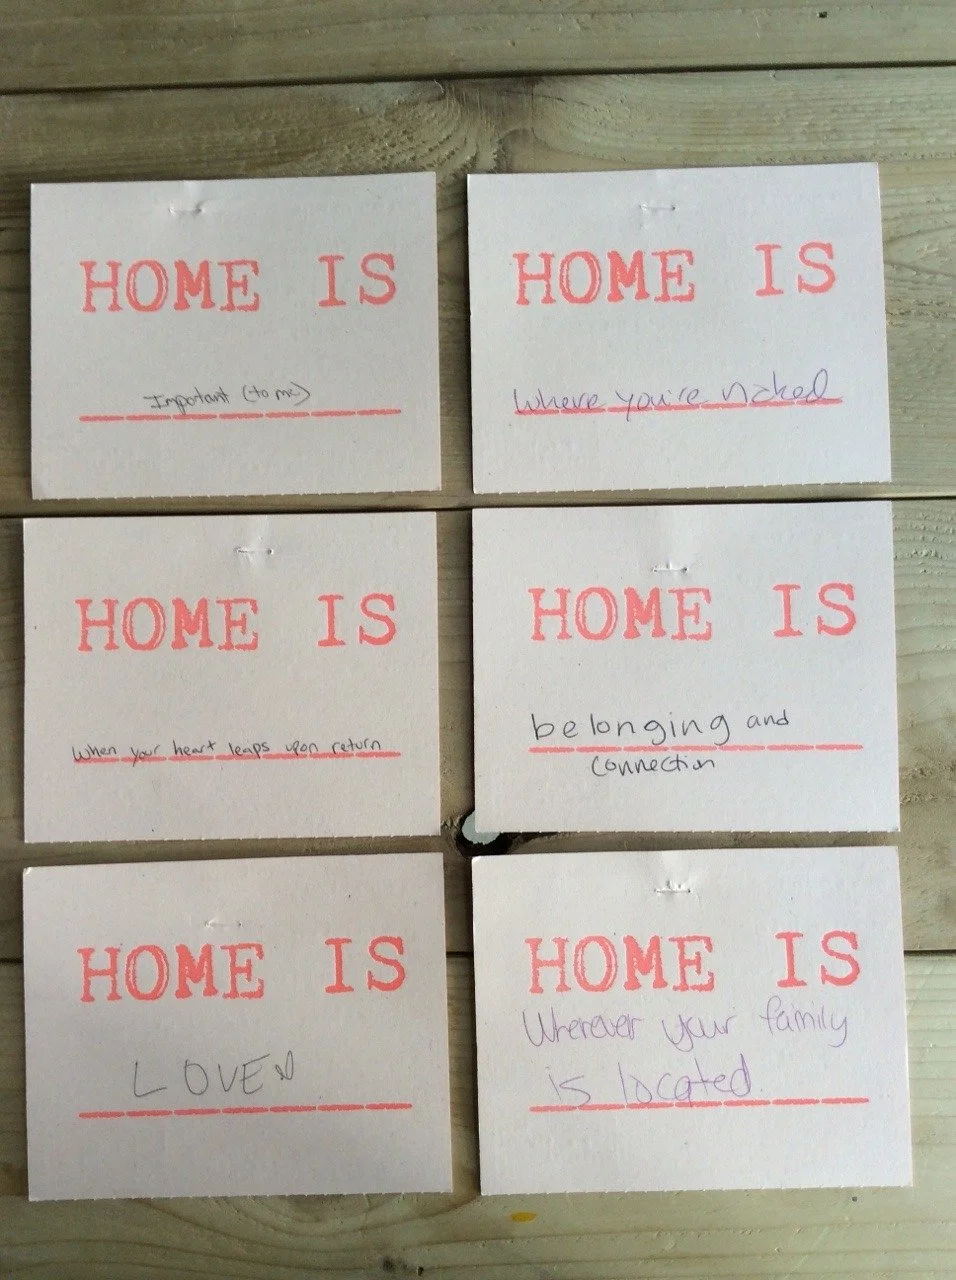 HOME IS
Important (to me)
HOME IS
Where you're naked
HOME IS
When your heart leaps upon return
HOME IS
belonging and
connection
HOME IS
LOVE
HOME IS
Wherever your family
is located.